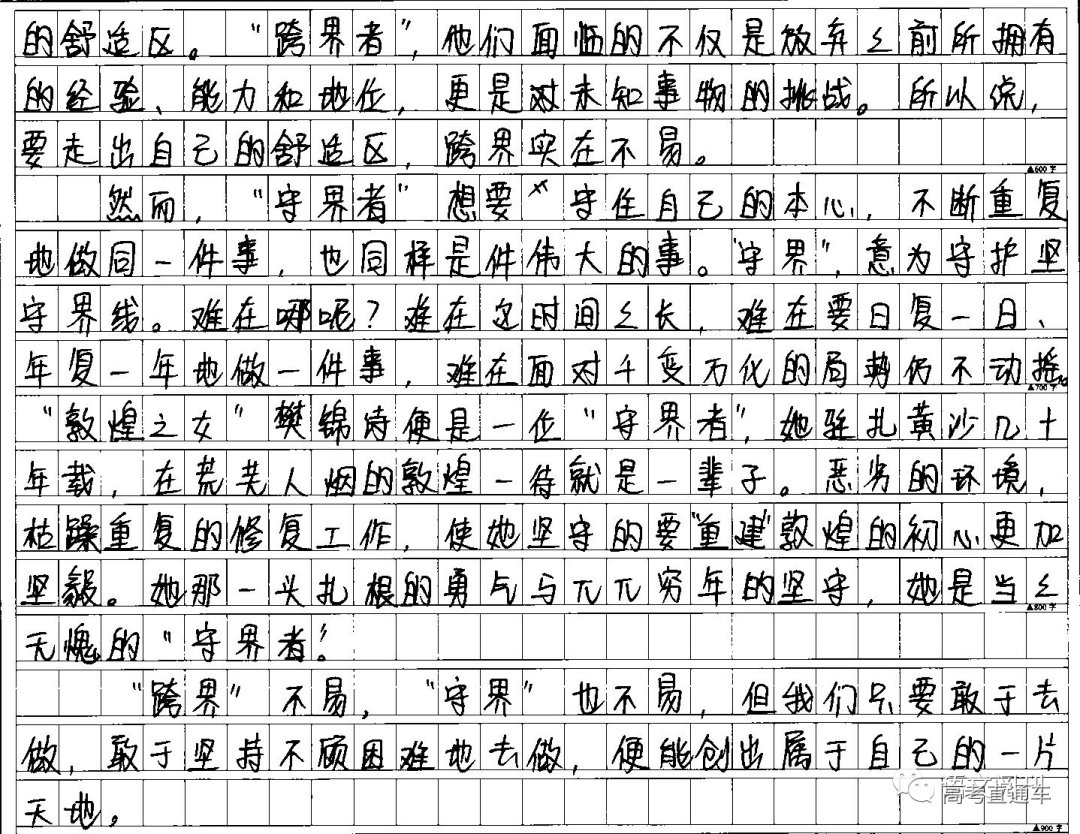 的舒适区。“跨界者”，他们面临的不仅是放弃之前所拥有
的经验、能力和地位，更是对未知事物的挑战。所以说，
要走出自己的舒适区，跨界实在不易。
▲600字
然而，“守界者”想要守住自己的本心，不断重复
地做同一件事，也同样是件伟大的事。“守界”，意为守护坚
守界线。难在哪呢？难在这时间之长，难在要日复一日、
年复一年地做一件事，难在面对千变万化的局势仍不动摇。
▲700字
“敦煌之女”樊锦诗便是一位“守界者”，她驻扎黄沙几十
年载，在荒芜人烟的敦煌一待就是一辈子。恶劣的环境，
枯躁重复的修复工作，使她坚守的要“重建”敦煌的初心更加
坚毅。她那一头扎根的勇气与兀兀穷年的坚守，她是当之
▲800字
无愧的“守界者”！
“跨界”不易，“守界”也不易，但我们只要敢于去
做，敢于坚持不顾困难地去做，便能创出属于自己的一片
天地。
高考直通车
▲900字